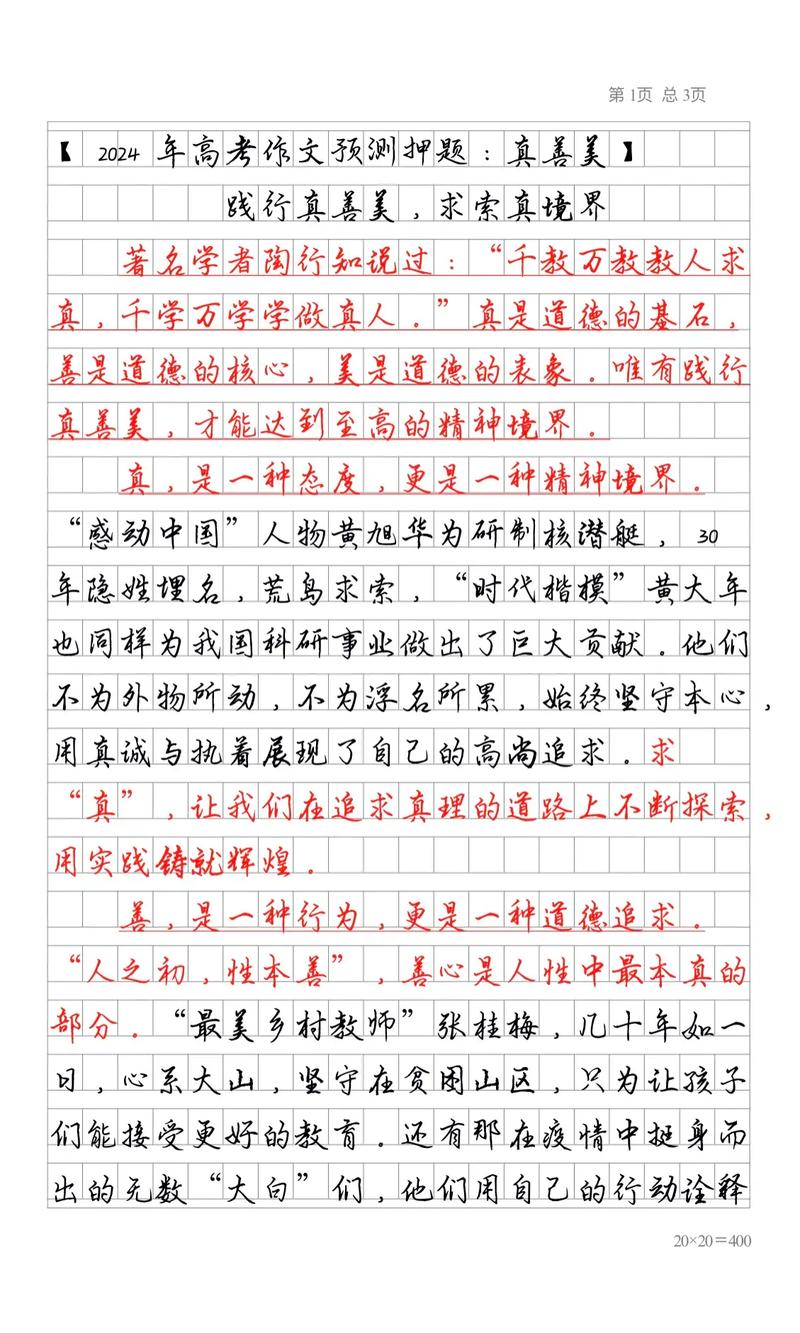 第1页 总3页
【 2024 年高考作文预测押题：真善美】
践行真善美，求索真境界
著名学者陶行知说过：“千教万教教人求
真，千学万学学做真人。”真是道德的基石，
善是道德的核心，美是道德的表象。唯有践行
真善美，才能达到至高的精神境界。
真，是一种态度，更是一种精神境界。
“感动中国”人物黄旭华为研制核潜艇，30
年隐姓埋名，荒岛求索，“时代楷模”黄大年
也同样为我国科研事业做出了巨大贡献。他们
不为外物所动，不为浮名所累，始终坚守本心，
用真诚与执着展现了自己的高尚追求。求
“真”，让我们在追求真理的道路上不断探索，
用实践铸就辉煌。
善，是一种行为，更是一种道德追求。
“人之初，性本善”，善心是人性中最本真的
部分。“最美乡村教师”张桂梅，几十年如一
日，心系大山，坚守在贫困山区，只为让孩子
们能接受更好的教育。还有那在疫情中挺身而
出的无数“大白”们，他们用自己的行动诠释
20×20＝400